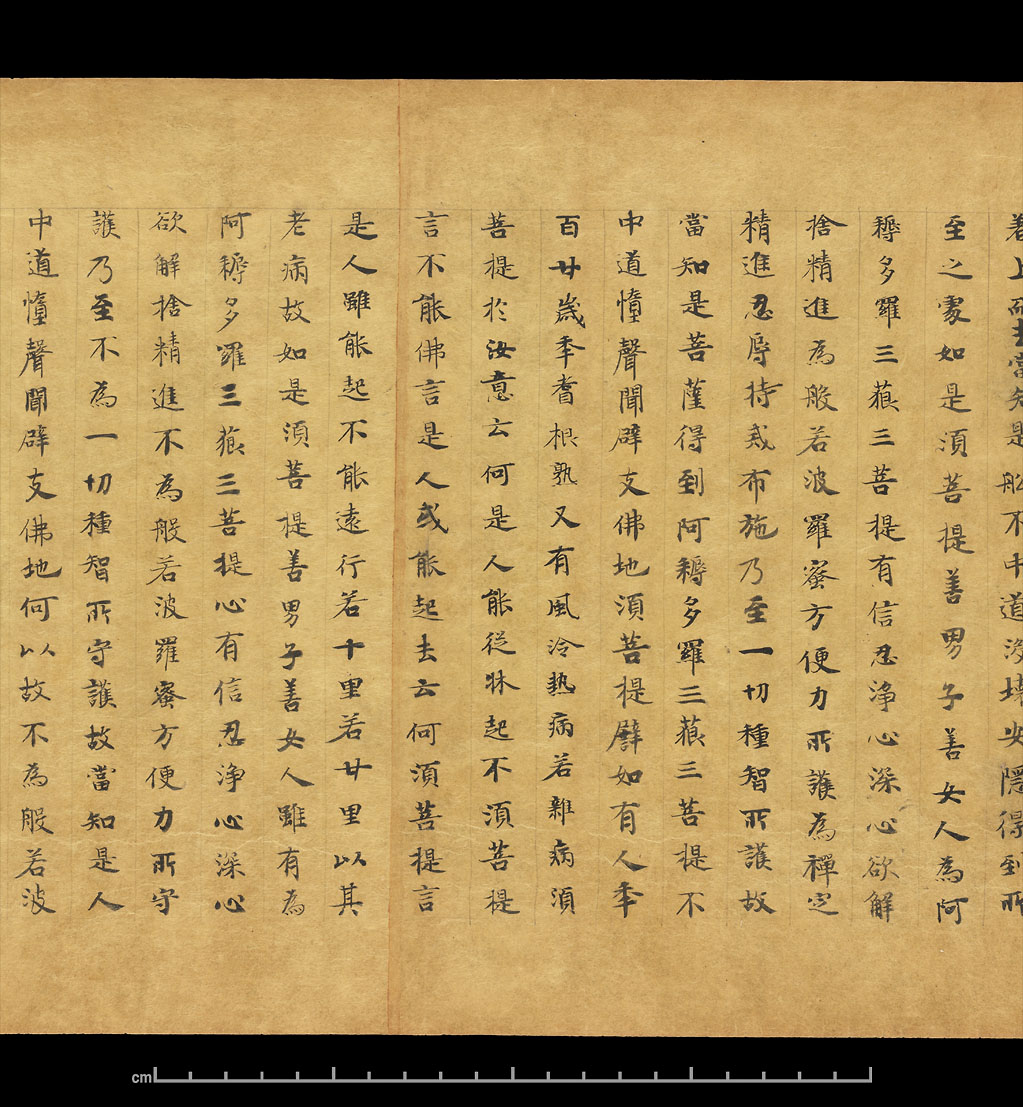 著上而去當知是船不中道沒壞安隱得到所
至之處如是須菩提善男子善女人為阿
耨多羅三藐三菩提有信忍淨心深心欲解
捨精進為般若波羅蜜方便力所護為禪定
精進忍辱持戒布施乃至一切種智所護故
當知是菩薩得到阿耨多羅三藐三菩提不
中道墮聲聞辟支佛地須菩提譬如有人年
百廿歲年耆根熟又有風冷熱病若雜病須
菩提於汝意云何是人能從牀起不須菩提
言不能佛言是人或能起去云何須菩提言
是人雖能起不能遠行若十里若廿里以其
老病故如是須菩提善男子善女人雖有為
阿耨多羅三藐三菩提心有信忍淨心深心
欲解捨精進不為般若波羅蜜方便力所守
護乃至不為一切種智所守護故當知是人
中道墮聲聞辟支佛地何以故不為般若波
cm